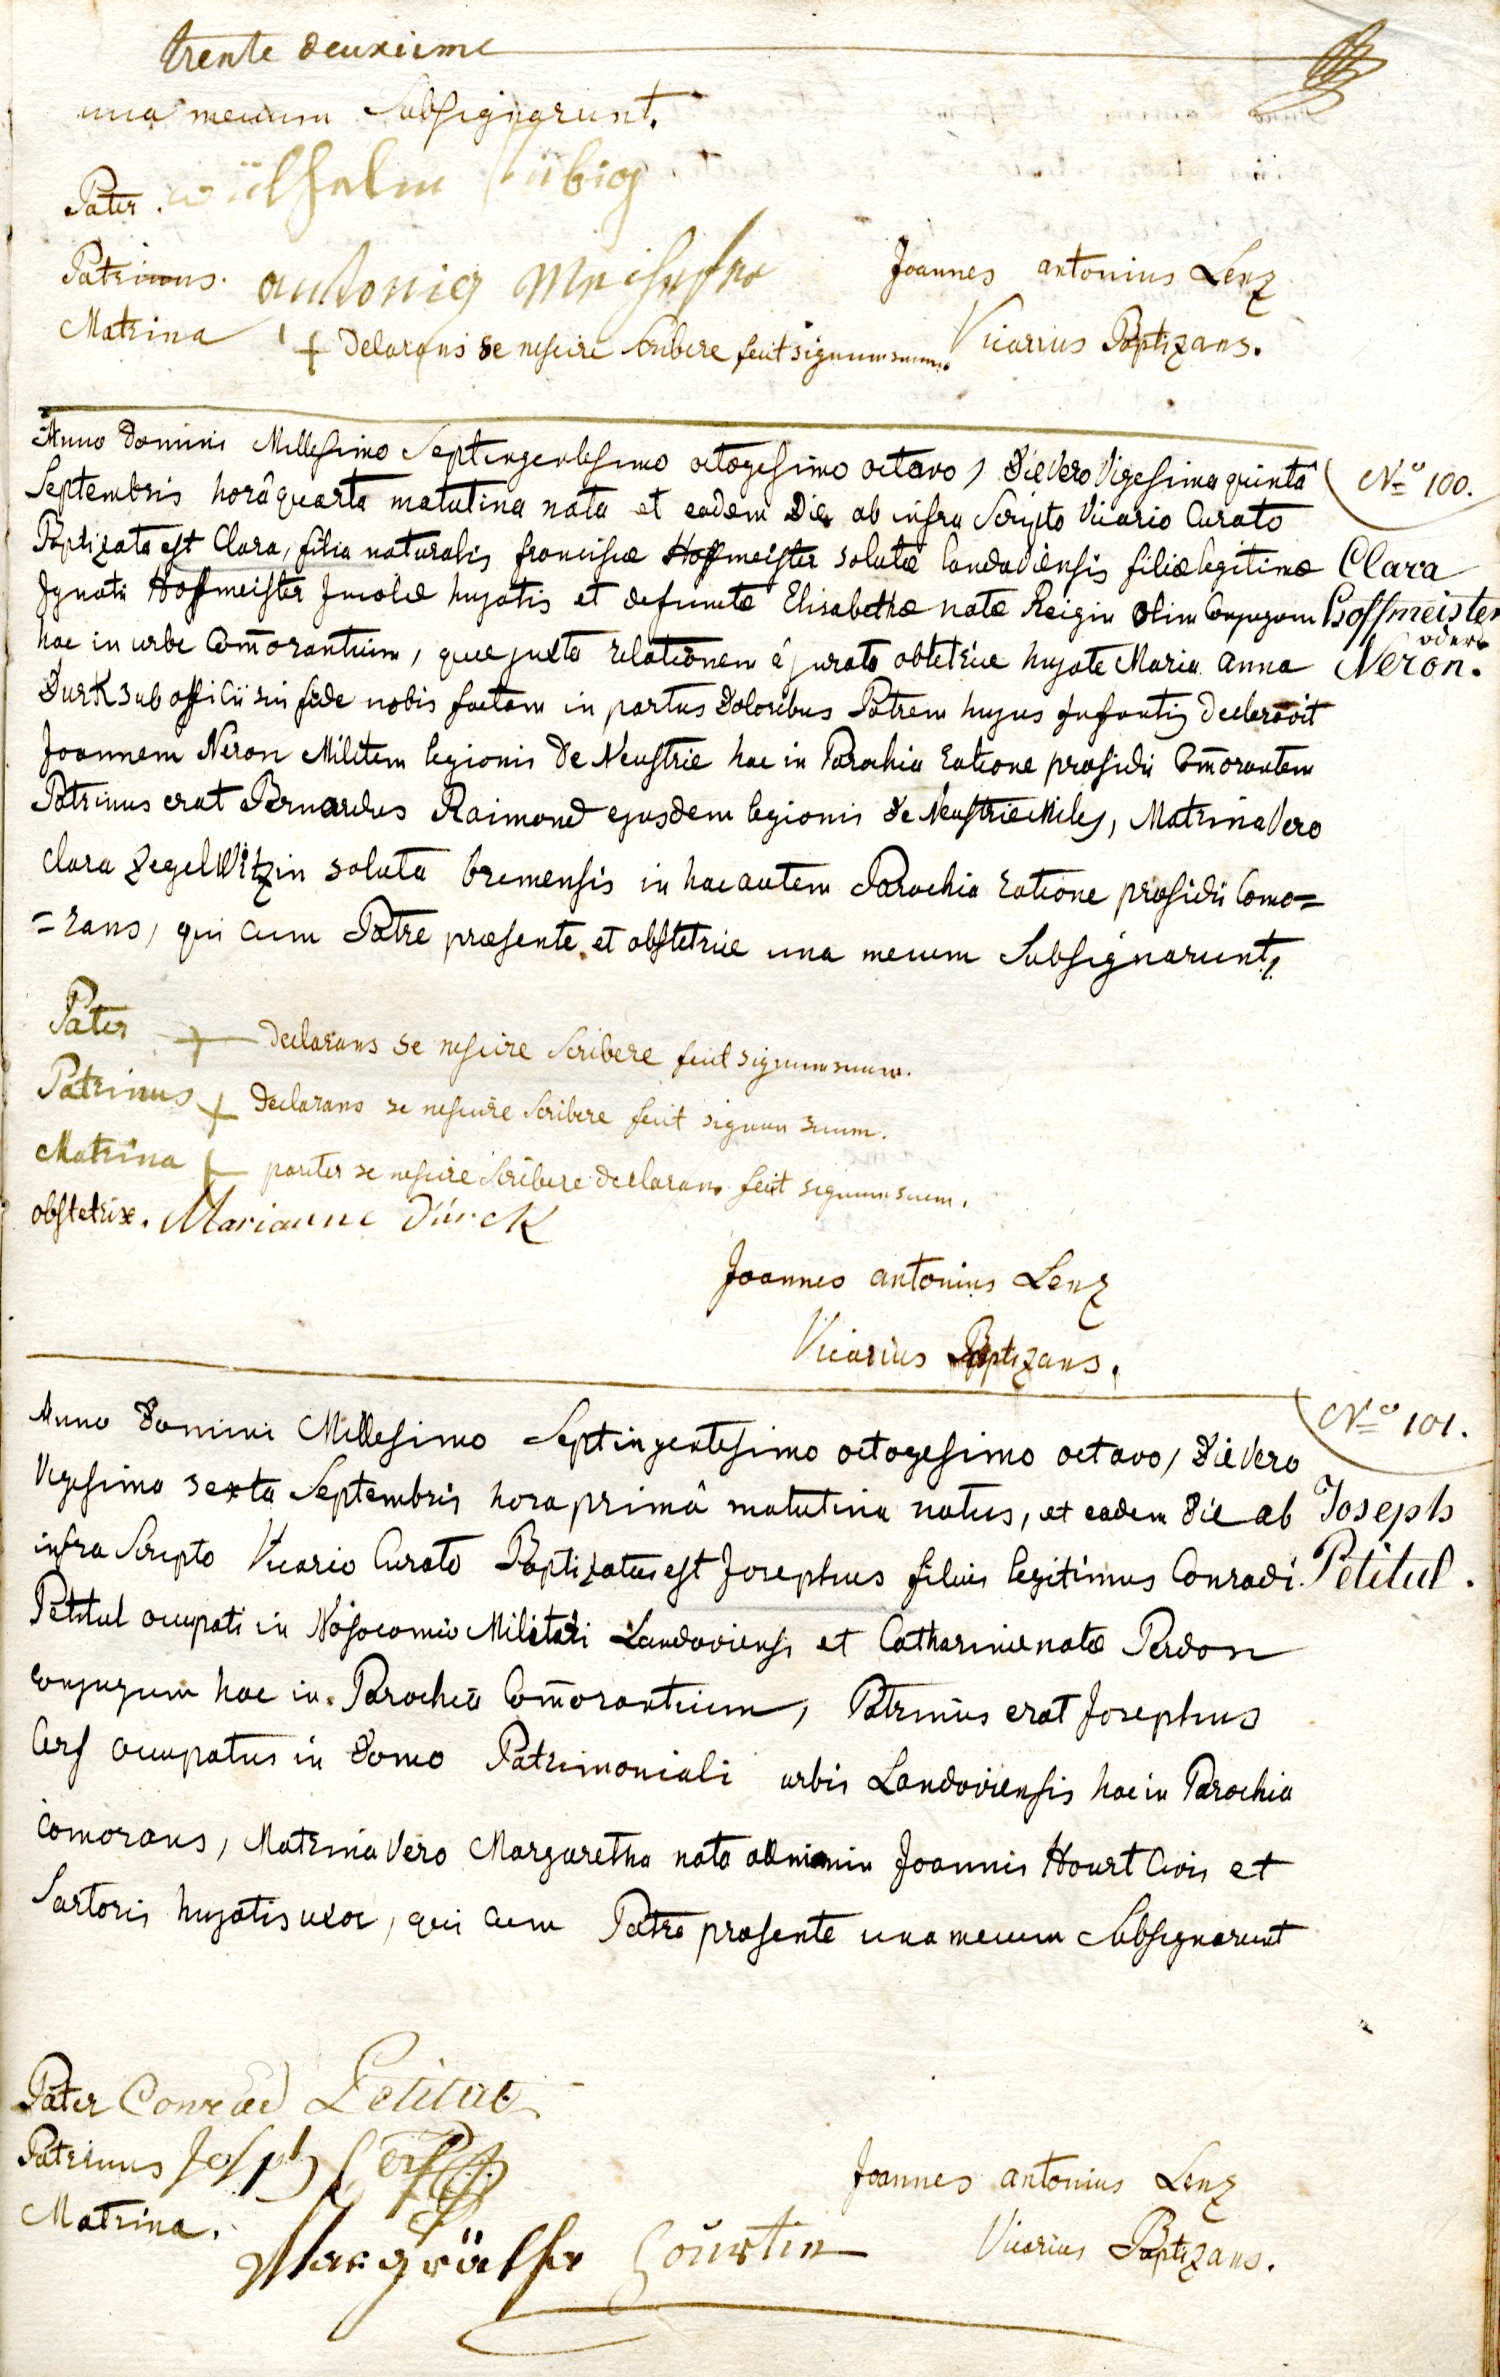 trente deuxieme
una mecum Subsignarunt.
Pater. wülhelm
Patrinus.
Joannes antonius Lenz
Matrina + Delarans se nescire scribere fecit signum suum.
Vicarius Baptizans.
Anno Domini Millesimo Septingentesimo octogesimo octavo, Die Vero Vigesima quintâ
Nº 100.
Septembris horâ quarta matutina nata et eadem Die ab infra Scripto Vicario Curato
Baptizata est Clara, filia naturalis franciscæ Hoffmeister solutæ landaviensis filiæ legitimæ
Clara
Ignatii Hoffmeister Incolæ hujatis et defunctæ Elisabethæ natæ Reigin olim Conjugum
Hoffmeister
hac in urbe Com̄orantium, quæ juxta relationem à jurata obstetrice hujate Maria anna
oder
Neron.
Durk sub officii sui fide nobis factam in partus Doloribus Patrem hujus Infantis declaravit
Joannem Neron Militem legionis de Neustrie hac in Parochia ratione præsidii Com̄orantem
Patrinus erat Bernardus Raimond ejusdem legionis de Neustrie Miles, Matrina Vero
Clara ZegelWitzin soluta bremensis in hac autem Parochia ratione præsidii Como=
=rans, qui cum Patre præsente et obstetrice una mecum Subsignarunt,
Pater + declarans se nescire Scribere fecit signum suum.
Patrinus + declarans se nescire Scribere fecit signum suum.
Matrina + pariter se nescire Scribere declarans fecit signum suum.
obstetrix. Marianne Dürck
Joannes antonius Lenz
Vicarius Baptizans.
Anno Domini Millesimo Septingentesimo octogesimo octavo, Die Vero
Nº 101.
Vigesima sexta Septembris hora primâ matutina natus, et eadem die ab
Joseph
infra Scripto Vicario Curato Baptizatus est Josephus filius legitimus Conradi
Petitul.
Petitul occupati in Nosocomio Militari Landaviensi et Catharinæ natæ Perdon
conjugum hac in Parochia Com̄orantium, Patrinus erat Josephus
Cerf occupatus in Domo Patrimoniali urbis Landaviensis hac in Parochia
comorans, Matrina Vero Margaretha nata Joannis Hourt Civis et
Sartoris hujatis uxor, qui cum Patre præsente una mecum Subsignarunt
Pater Conrad Petitul
Patrinus Joseph Cerf
Joannes antonius Lenz
Matrina.
Vicarius Baptizans.